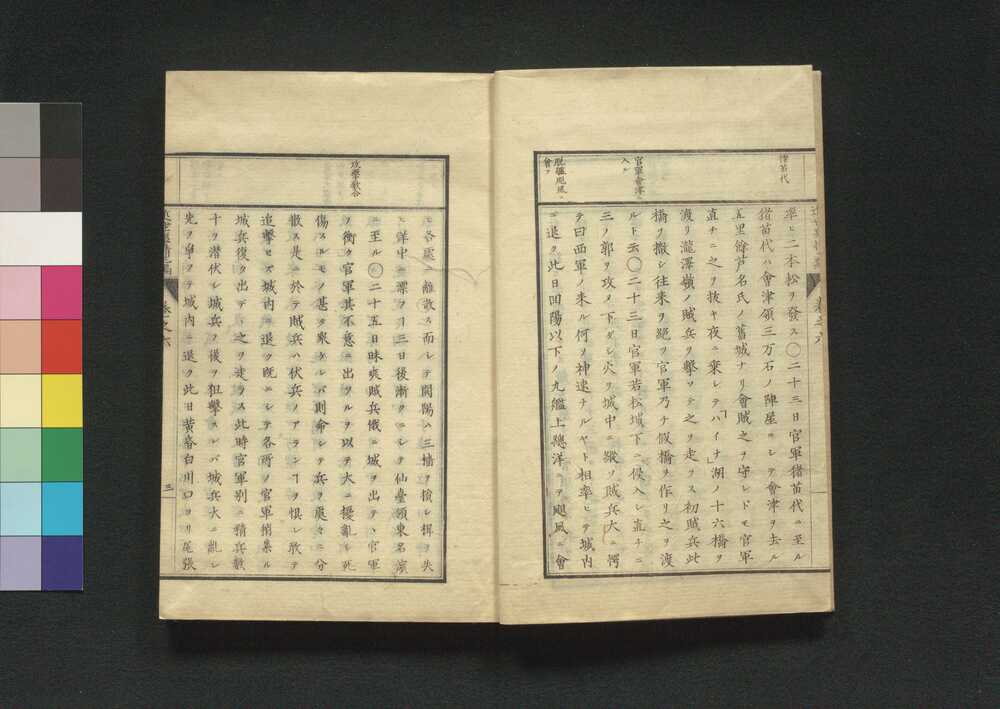 猪苗代
率ヒ二本松ヲ發ス〇二十三日官軍猪苗代ニ至ル
猪苗代ハ會津領三万石ノ陣屋ニシテ會津ヲ去ル
五里餘芦名氏ノ舊城ナリ會賊之ヲ守レドモ官軍
直チニ之ヲ抜ヤ夜ニ乗レテハ「イナ」湖ノ十六橋ヲ
渡リ瀧澤嶺ノ賊兵ヲ擊ッテ之ヲ走ラス初賊兵此
橋ヲ撤シ往来ヲ絶ツ官軍乃チ假橋ヲ作リ之ヲ渡
官軍會津ニ入ル
ルト云〇二十三日官軍若松城下ニ侵入シ直チニ
三ノ郭ヲ攻メ下ダシ火ヲ城中ニ縱ツ賊兵大ニ愕
テ曰西軍ノ来ル何ゾ神速ナルヤト相率ヒテ城内
脱艦颶風ニ會フ
ニ退ク此日回陽以下ノ九艦上總洋ニテ颶風ニ會
ヒ各處ニ離散ス而シテ開陽ハ三檣ヲ損シ楫ヲ失
ヒ洋中ニ漂フヿ三日後漸クニシテ仙臺領東名濵
攻擊數合
ニ至ル〇二十五日昧爽賊兵俄ニ城ヲ出テ、官軍
ヲ衝ク官軍其不意ニ出ヅルヲ以テ大ニ擾亂シ死
傷スルモノ甚タ衆ケレバ則令シテ兵ヲ處々ニ分
散ス是ニ於テ賊兵ハ伏兵ノアランヿヲ惧レ敢テ
追擊セズ城内ニ退ク既ニシテ各所ノ官軍稍集ル
城兵復タ出デ、之ヲ走ラス此時官軍別ニ精兵數
十ヲ潜伏シ城兵ヲ後ヲ狙擊スレバ城兵大ニ亂レ
先ヲ爭フテ城内ニ退ク此日黄昏白川口ヨリ尾張
卷之六
三